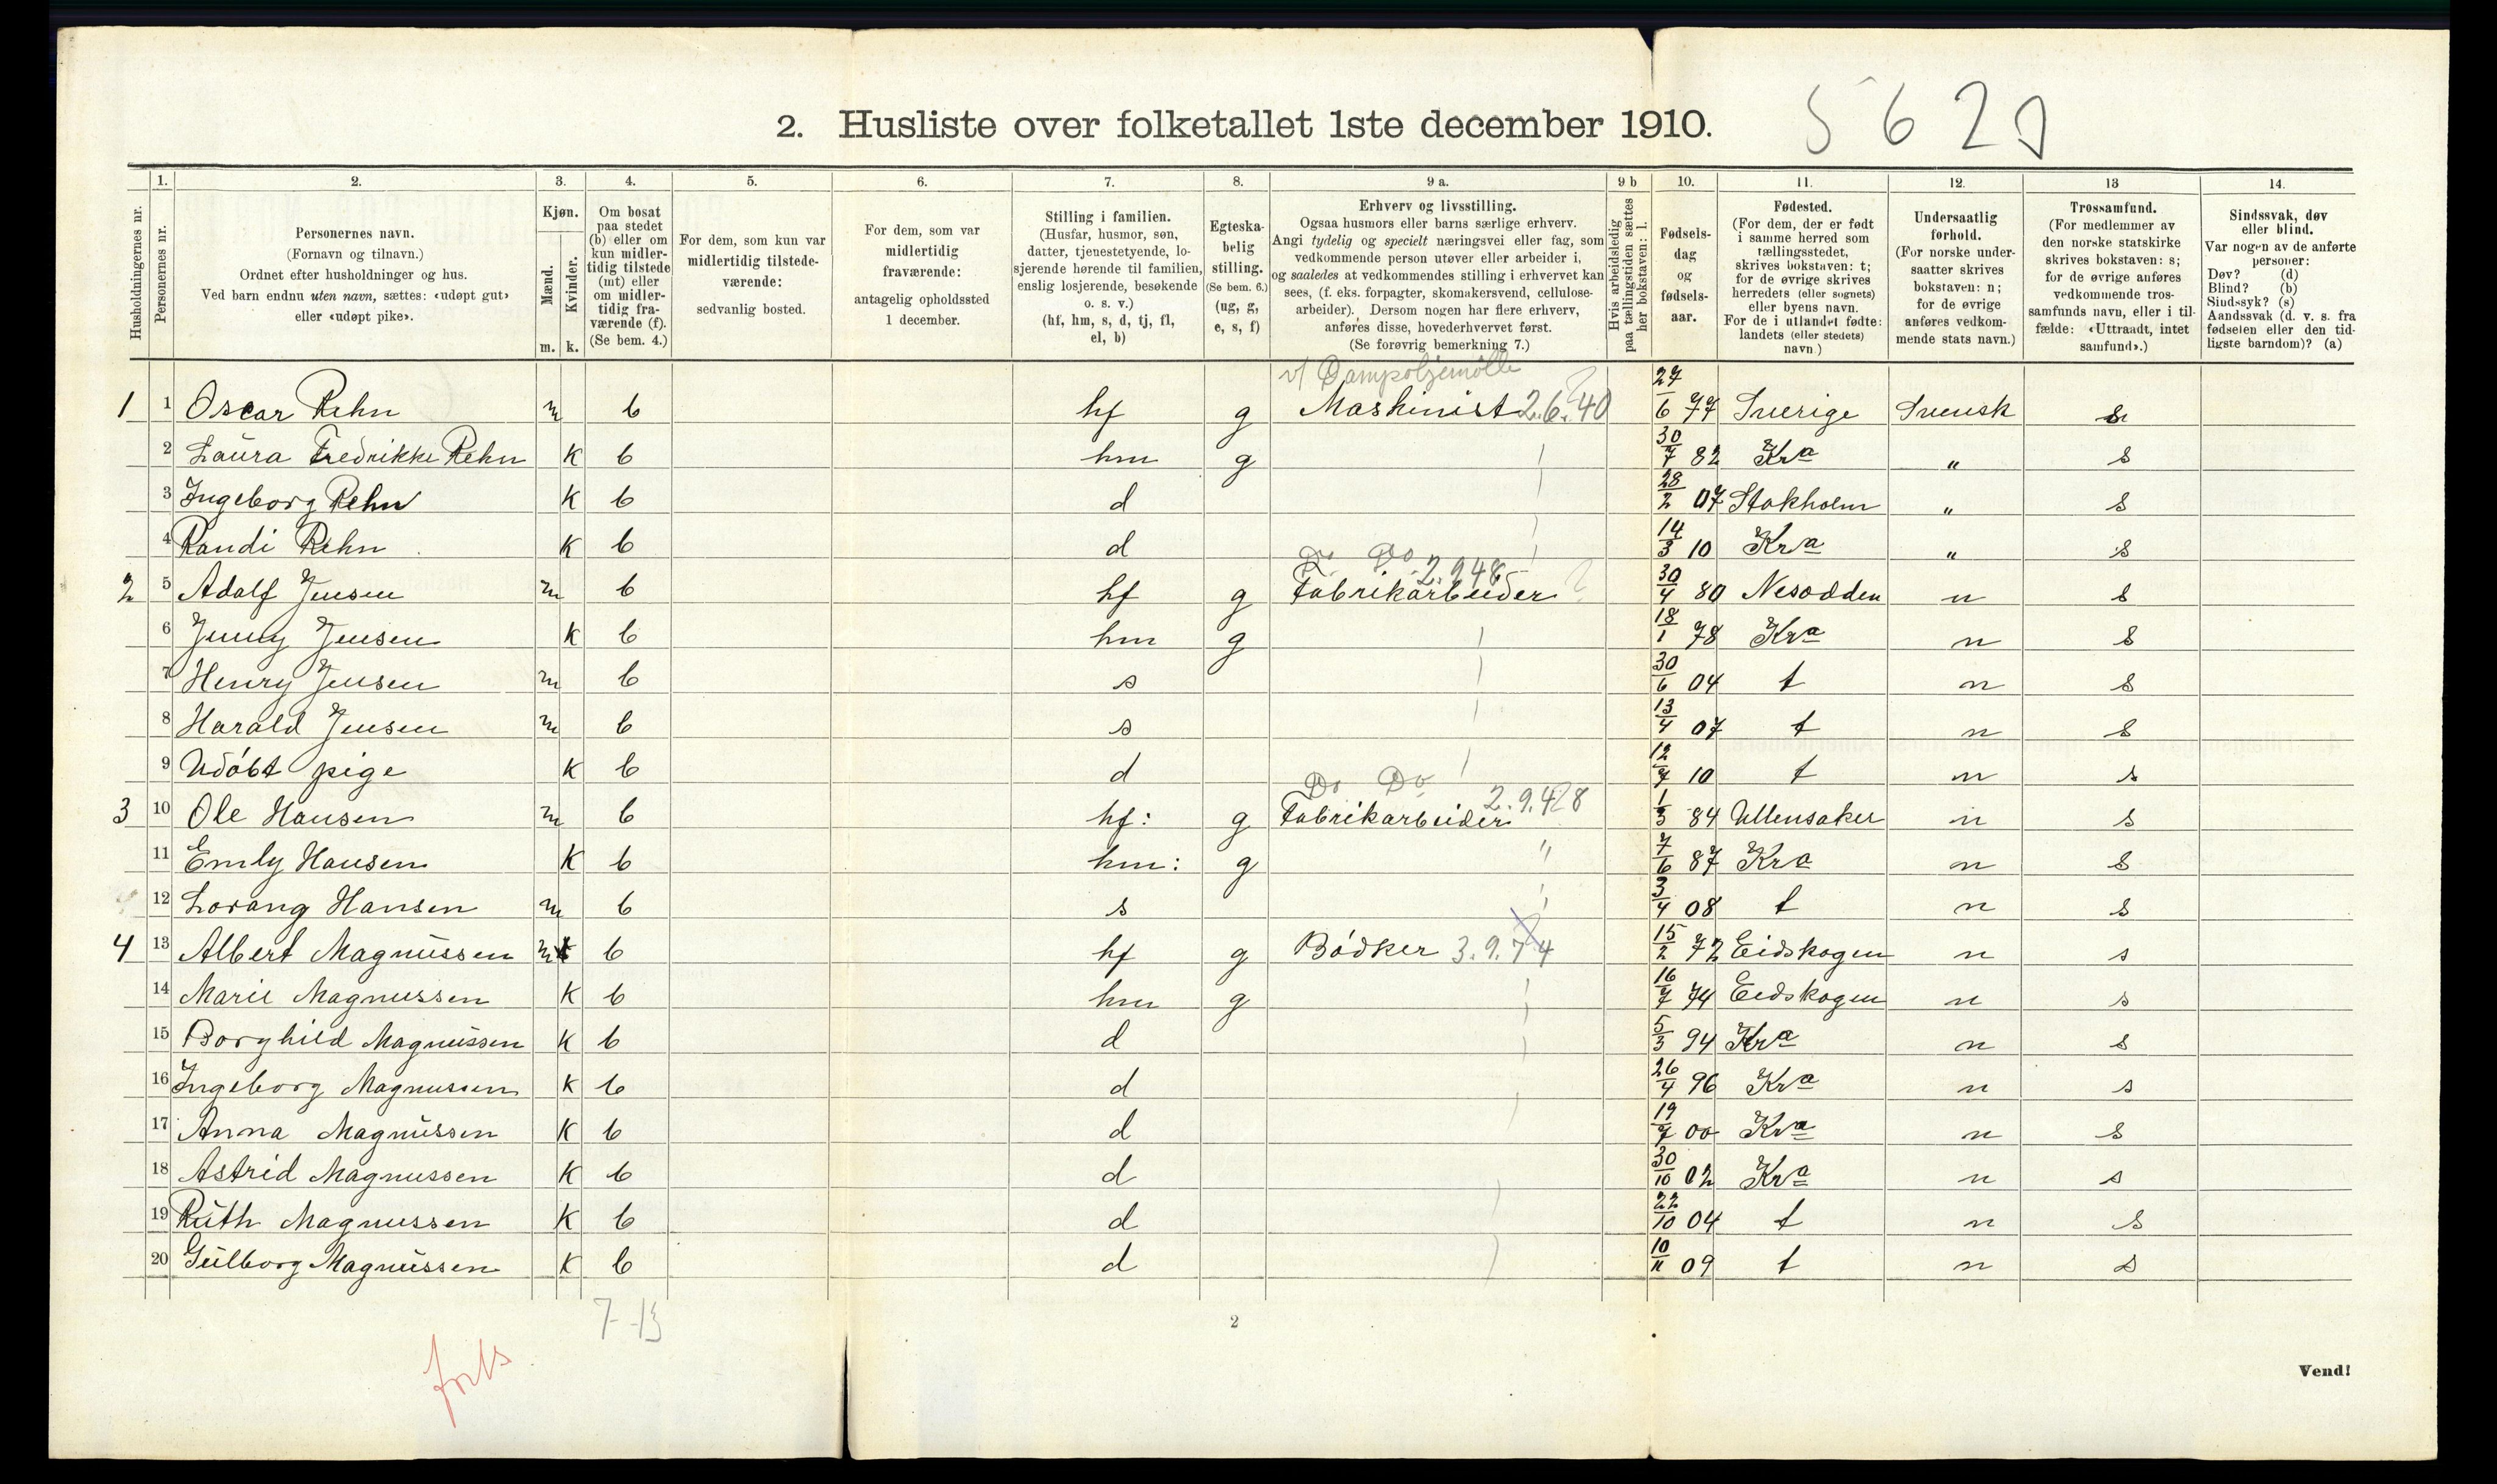 5620
2. Husliste over folketallet 1ste december 1910.
Husholdningernes nr.
1. Personernes nr.
2. Personernes navn.
(Fornavn og tilnavn.)
Ordnet efter husholdninger og hus.
Ved barn endnu uten navn, sættes: «udøpt gut»
eller «udøpt pike».
3. Kjøn.
Mænd. Kvinder.
m. k.
4. Om bosat
paa stedet
(b) eller om
kun midler-
tidig tilstede
(mt) eller
om midler-
tidig fra-
værende (f).
(Se bem. 4.)
5. For dem, som kun var
midlertidig tilstede-
værende:
sedvanlig bosted.
6. For dem, som var
midlertidig
fraværende:
antagelig opholdssted
1 december.
7. Stilling i familien.
(Husfar, husmor, søn,
datter, tjenestetyende, lo-
sjerende hørende til familien,
enslig losjerende, besøkende
o. s. v.)
(hf, hm, s, d, tj, fl,
el, b)
8. Egteska-
belig
stilling.
(Se bem. 6.)
(ug, g,
e, s, f)
9 a. Erhverv og livsstilling.
Ogsaa husmors eller barns særlige erhverv.
Angi tydelig og specielt næringsvei eller fag, som
vedkommende person utøver eller arbeider i,
og saaledes at vedkommendes stilling i erhvervet kan
sees, (f. eks. forpagter, skomakersvend, cellulose-
arbeider). Dersom nogen har flere erhverv,
anføres disse, hovederhvervet først.
(Se forøvrig bemerkning 7.)
9 b Hvis arbeidsledig
paa tællingstiden sættes
her bokstaven: l.
10. Fødsels-
dag
og
fødsels-
aar.
11. Fødested.
(For dem, der er født
i samme herred som
tællingsstedet,
skrives bokstaven: t;
for de øvrige skrives
herredets (eller sognets)
eller byens navn.
For de i utlandet fødte:
landets (eller stedets)
navn.)
12. Undersaatlig
forhold.
(For norske under-
saatter skrives
bokstaven: n;
for de øvrige
anføres vedkom-
mende stats navn.)
13 Trossamfund.
(For medlemmer av
den norske statskirke
skrives bokstaven: s;
for de øvrige anføres
vedkommende tros-
samfunds navn, eller i til-
fælde: «Uttraadt, intet
samfund».)
14. Sindssvak, døv
eller blind.
Var nogen av de anførte
personer:
Døv? (d)
Blind? (b)
Sindssyk? (s)
Aandssvak (d. v. s. fra
fødselen eller den tid-
ligste barndom)? (a)
v/ Dampoljemölle
1 1 Oscar Rehn m b hf g Maskinist 2.6.40 27/6 77 Sverige Svensk s
2 Laura Fredrikke Rehn K b hm g 30/7 82 Kra " s
3 Ingeborg Rehn K b d 28/2 07 Stokholm " s
4 Randi Rehn K b d 14/3 10 Kra " s
Do Do 2.948
2 5 Adolf Jensen m b hf g Fabrikarbeider 30/4 80 Nesodden n s
6 Jenny Jensen K b hm g 18/1 78 Kra n s
7 Henry Jensen m b s 30/6 04 t n s
8 Harald Jensen m b s 13/4 07 t n s
9 Udöbt pige K b d 12/7 10 t n s
Do Do 2.9.428
3 10 Ole Hansen m b hf: g Fabrikarbeider 1/3 84 Ullensaker n s
11 Emly Hansen K b hm: g " 7/6 87 Kra n s
12 Lorang Hansen m b s 3/4 08 t n s
4 13 Albert Magnussen m b hf g Bödker 3.9.74 15/2 72 Eidskogen n s
14 Marie Magnussen K b hm g 16/7 74 Eidskogen n s
15 Borghild Magnussen K b d 5/3 94 Kra n s
16 Ingeborg Magnussen K b d 26/4 96 Kra n s
17 Anna Magnussen K b d 19/7 00 Kra n s
18 Astrid Magnussen K b d 30/10 02 Kra n s
19 Ruth Magnussen K b d 22/10 04 t n s
20 Gulborg Magnussen K b d 10/11 09 t n s
7-13
2
forts
Vend!